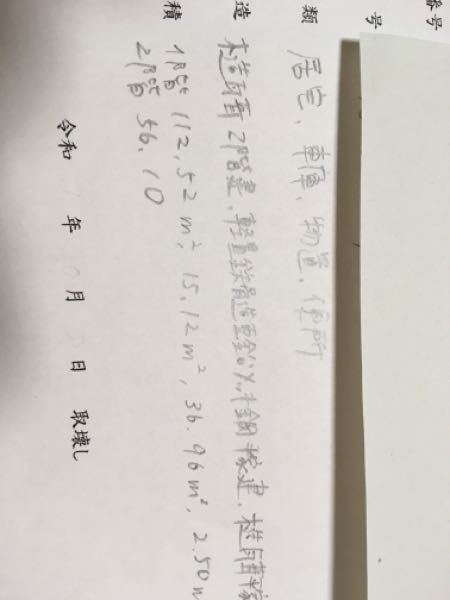 番号
号
類 居宅、車庫、物置、便所
造 木造瓦葺2階建、軽量鉄骨造亜鉛メッキ鋼 平家建、木造 平家
積 1階 112.52m²、15.12m²、36.96m²、2.50m
2階 56.10
令和 年 月 日 取壊し